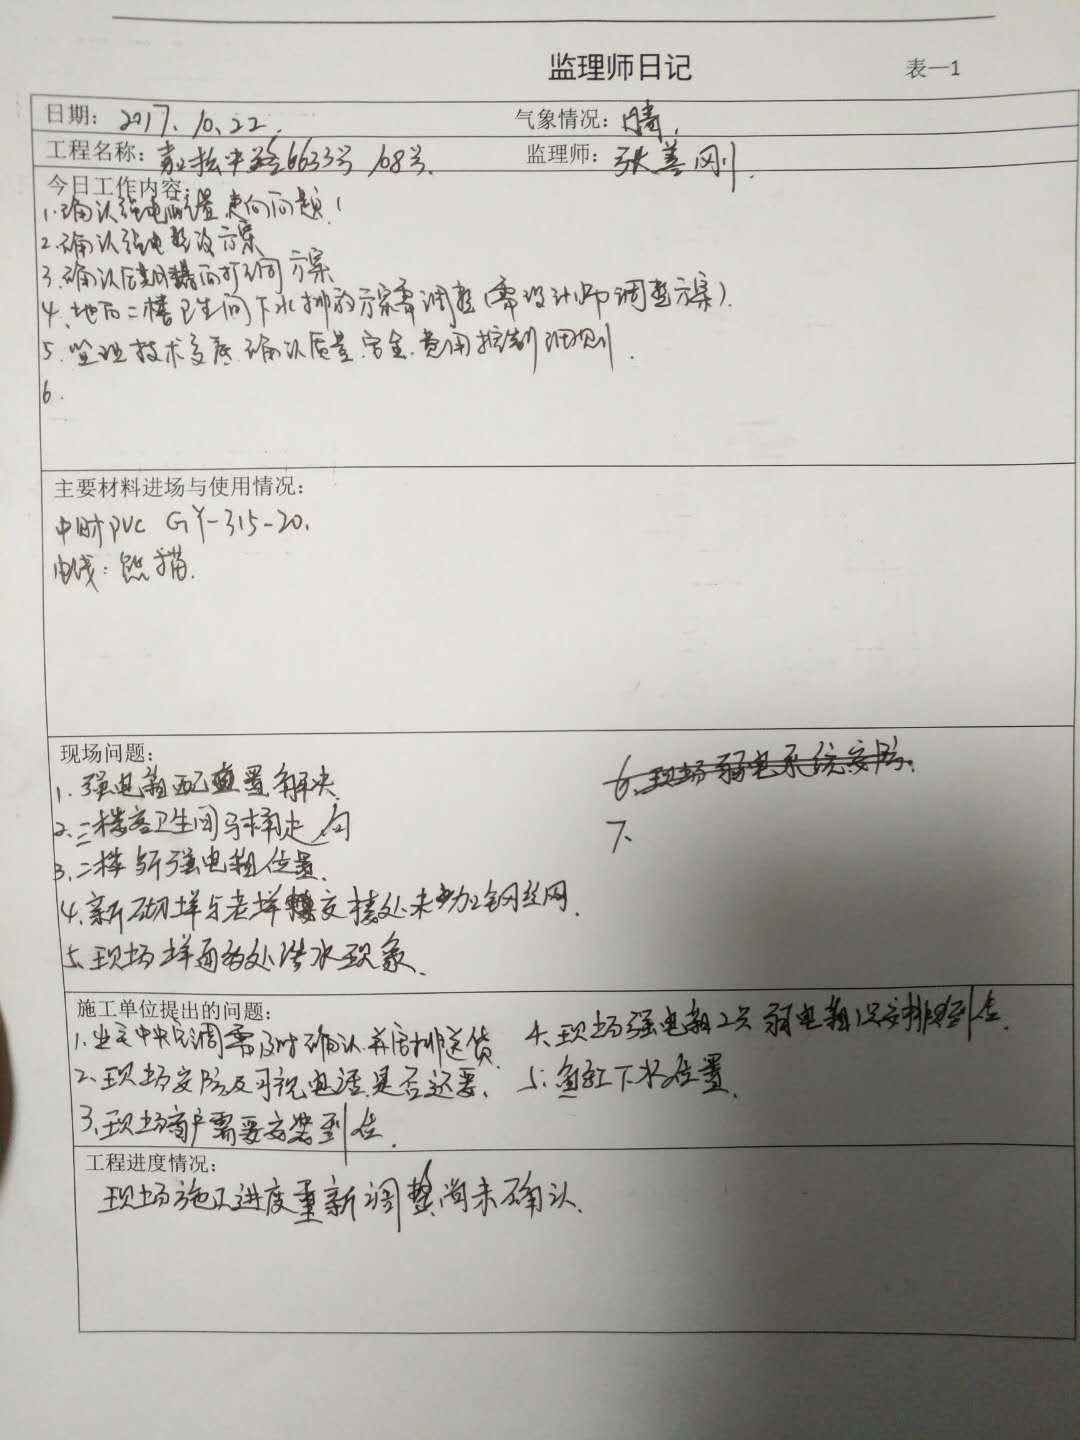 监理师日记 表一1
日期: 2017.10.22. 气象情况: 晴.
工程名称: 6633号 108号. 监理师: 张善刚
今日工作内容:
1.确认强电配置走向问题!
2.确认强电整改方案
3.确认后期墙面打洞方案
4.地下二楼卫生间下水排放方案需调整(需设计师调整方案).
5.监理技术交底.确认质量.安全.费用控制细则.
6.
主要材料进场与使用情况:
中财PVC GY-315-20.
电线:熊猫.
现场问题:
1.强电箱配置解决.
2.二楼客卫生间马桶走向
3.二楼 强电箱位置.
4.新砌墙与老墙交接处未加钢丝网.
5.现场墙面 处渗水现象.
6.现场弱电系统安防.
7.
施工单位提出的问题:
1.业主中央空调需及时确认并安排送货.
2.现场安防及可视电话是否还要.
3.现场窗户需要安装到位.
4.现场强电箱2只弱电箱1只安排 到位.
5.鱼缸下水位置.
工程进度情况:
现场施工进度重新调整尚未确认.